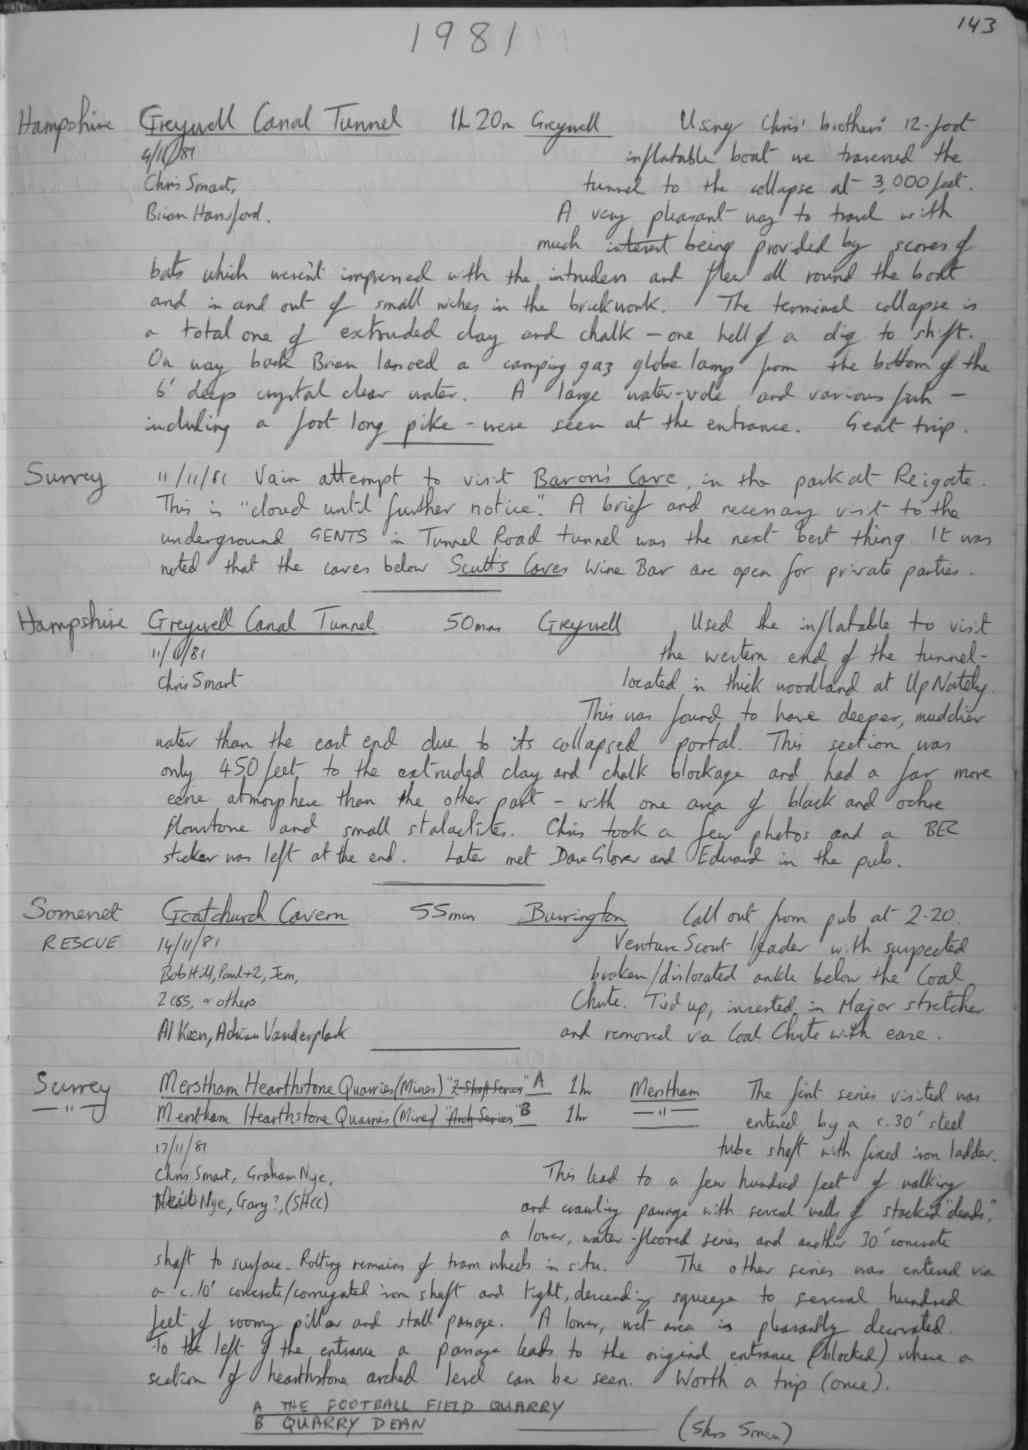 143
1981
Hampshire Greywell Canal Tunnel 1h 20m Greywell Using Chris' brothers' 12-foot
4/11/81 inflatable boat we traversed the
Chris Smart, tunnel to the collapse at 3,000 feet.
Brian Hansford. A very pleasant way to travel with
much interest being provided by scores of
bats which weren't impressed with the intruders and flew all round the boat
and in and out of small niches in the brickwork. The terminal collapse is
a total one of extruded clay and chalk - one hell of a dig to shift.
On way back Brian a camping gaz globe lamp from the bottom of the
6' deep crystal clear water. A large water-vole and various fish -
including a foot long pike - were seen at the entrance. Great trip.
Surrey 11/11/81 Vain attempt to visit Baron's Cave, in the park at Reigate.
This is "closed until further notice". A brief and necessary visit to the
underground GENTS in Tunnel Road tunnel was the next best thing. It was
noted that the caves below Scutt's Caves Wine Bar are open for private parties.
Hampshire Greywell Canal Tunnel 50mns Greywell Used the inflatable to visit
11/11/81 the western end of the tunnel -
Chris Smart located in thick woodland at Up Nately.
This was found to have deeper, muddier
water than the east end due to its collapsed portal. This section was
only 450 feet to the extruded clay and chalk blockage and had a far more
eerie atmosphere than the other part - with one area of black and ochre
flowstone and small stalactites. Chris took a few photos and a BEC
sticker was left at the end. Later met Dave Glover and Edward in the pub.
Somerset Goatchurch Cavern 55min Burrington Call out from pub at 2-20.
RESCUE 14/11/81 Venture Scout leader with suspected
Bob Hill, Paul+2, Jem, broken/dislocated ankle below the Coal
2 CSS, others Chute. Tied up, inserted in Major stretcher
Al Keen, Adrian Vanderplank and removed via Coal Chute with ease.
Surrey Merstham Hearthstone Quarries (Mines) "2-Shaft Series" A 1hr Merstham The first series visited was
— " — Merstham Hearthstone Quarries (Mines) "Arch Series" B 1hr — " — entered by a c.30' steel
17/11/81 tube shaft with fixed iron ladder.
Chris Smart, Graham Nye, This lead to a few hundred feet of walking
Nye, Gary?, (SHCC) and crawling passage with several walls of stacked "deads",
a lower, water-floored series and another 30' concrete
shaft to surface. Rotting remains of tram wheels in situ. The other series was entered via
a c.10' concrete/corrugated iron shaft and tight, descending squeeze to several hundred
feet of roomy pillar and stall passage. A lower, wet area is pleasantly decorated.
To the left of the entrance a passage leads to the original entrance (blocked) where a
section of hearthstone arched level can be seen. Worth a trip (once).
A THE FOOTBALL FIELD QUARRY
B QUARRY DEAN